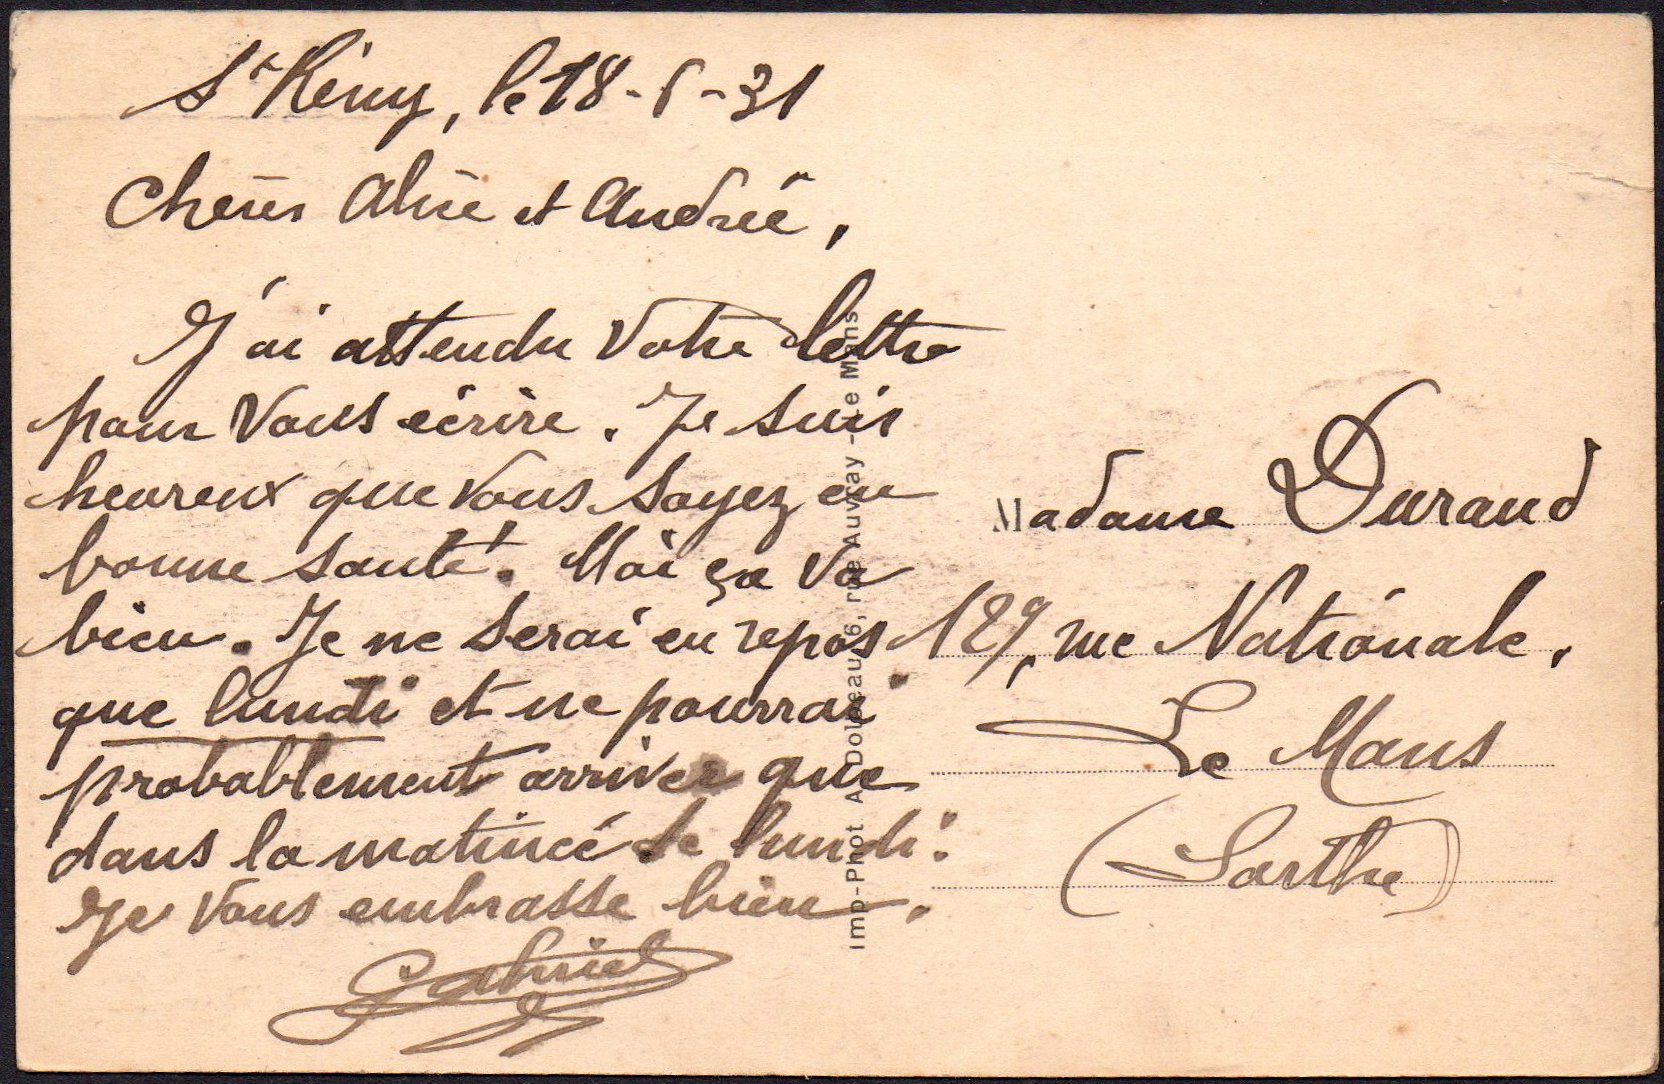 St Rémy, le 18-6-31
Chères Alice et Andrée,
J'ai attendu votre lettre
pour vous écrire. Je suis
heureux que vous soyez en
bonne santé. Moi ça va
bien. Je ne serai en repos
que lundi et ne pourrai
probablement arriver que
dans la matinée de lundi.
Je vous embrasse bien.
Gabriel
Imp-Phot A. Dolbeau, 6, rue Auvray - Le Mans
Madame Durand
129, rue Nationale.
Le Mans
(Sarthe)